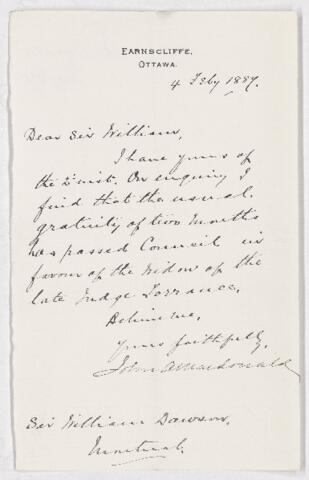 EARNSCLIFFE,
OTTAWA.
4 Feby 1887.
Dear Sir William,
I have yours of
the 2d inst. On enquiry I
find that the usual
gratuity of two months
has passed Council in
favour of the widow of the
late Judge Torrance.
Believe me,
Yours faithfully,
John A Macdonald
Sir William Dawson,
Montreal.